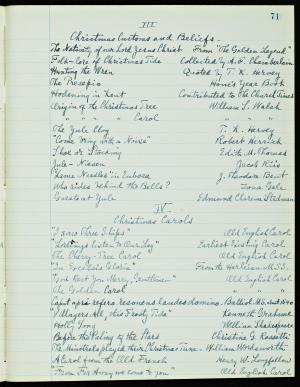 71
III
Christmas Customs and Beliefs.
The Nativity of our Lord Jesus Christ From "The Golden Legend"
Folk-lore of Christmas Tide Collected by A. F. Chamberlain
Hunting the Wren Quoted by T. K. Hervey
The Presepio Hone's Year Book
Hodening in Kent Contributed to the Church Times
Origin of the Christmas Tree William S. Walsh
" " " " Carol " " "
The Yule Clog T. K. Hervey
"Come Bring with a Noise" Robert Herrick
Shoe or Stocking Edith M. Thomas
Jule-Nissen Jacob Riis
"Lame Needles" in Eubœa J. Theodore Bent
Who rides behind the Bells? Zona Gale
Guests at Yule Edmund Clarence Stedman
IV
Christmas Carols
"I saw Three Ships" Old English Carol
"Lordings listen to Our Lay" Earliest Existing Carol
The Cherry-Tree Carol Old English Carol
"In Excelsis Gloria" From the Harleian M.S.S.
"God Rest You Merry, Gentlemen" Old English Carol
The Golden Carol " " "
Caput apri refero resonens laudes domino. Balliol M.S. about 1540
"Villagers All, this Frosty Tide" Kenneth Grahame
Holly Song William Shakespeare
Before the Paling of the Stars Christina G. Rossetti
The Minstrels played their Christmas Tune. William Wordsworth
A Carol from the Old French Henry W. Longfellow
"From Far Away we come to you" Old English Carol